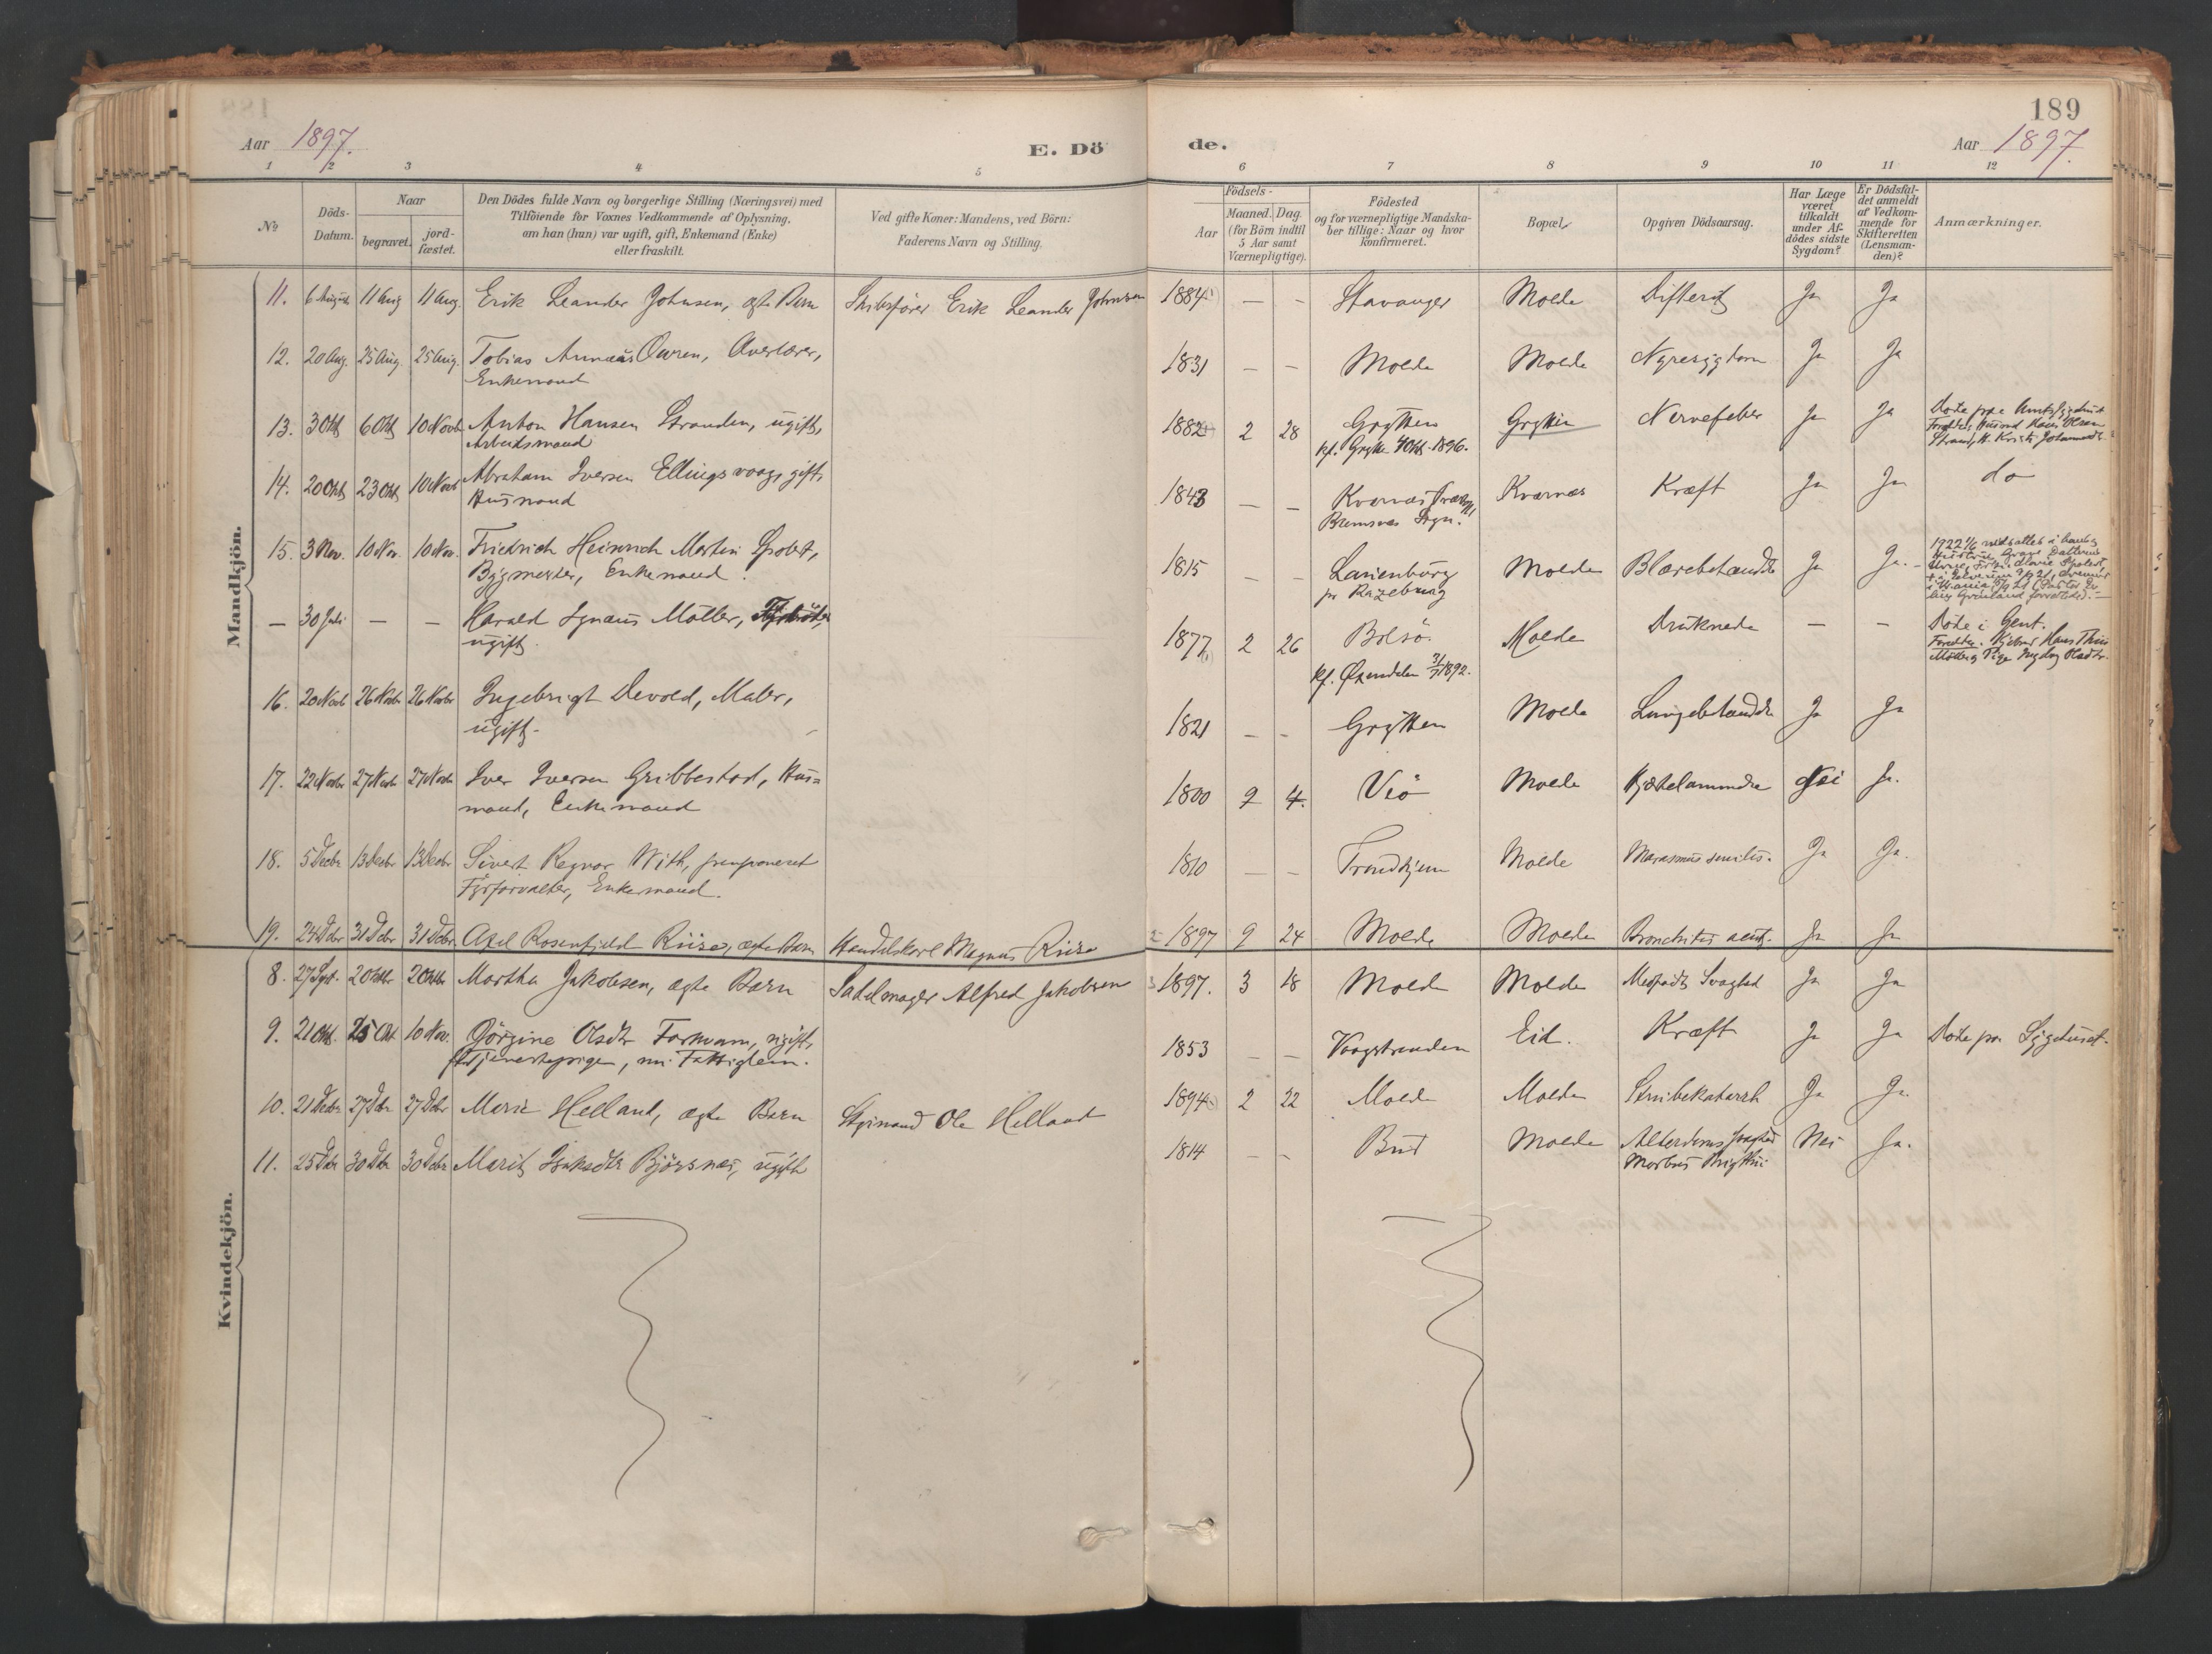 189
Aar 1897.
E. Dö
de.
Aar 1897.
1 2 3 4 5 6 7 8 9 10 11 12
№
Döds-
Datum.
Naar
begravet.
jord-
fæstet.
Den Dödes fulde Navn og borgerlige Stilling (Næringsvei) med
Tilföiende for Voxnes Vedkommende af Oplysning,
om han (hun) var ugift, gift, Enkemand (Enke)
eller fraskilt.
Ved gifte Koner: Mandens, ved Börn:
Faderens Navn og Stilling.
Födsels-
Aar
Maaned. Dag
(for Börn indtil
5 Aar samt
Værnepligtige).
Födested
og for værnepligtige Mandska-
ber tillige: Naar og hvor
konfirmeret.
Bopæl.
Opgiven Dödsaarsag.
Har Læge
været
tilkaldt
under Af-
dödes sidste
Sygdom?
Er Dödsfal-
det anmeldt
af Vedkom-
mende for
Skifteretten
(Lensman-
den)?
Anmærkninger.
Mandkjön.
11. 6 August 11 Aug 11 Aug. Erik Leander Johnsen, ægte Barn Skibsfører Erik Leander Johnsen 1884 — — Stavanger Molde Difterit Ja Ja
12. 20 Aug. 25 Aug 25 Aug. Tobias Annæus Owren, Overlærer, 1831 — — Molde Molde Nyresygdom Ja Ja
Enkemand
13. 3 Okt 6 Okt 10 Novb Anton Hansen Stranden, ugift, 1882 2 28 Grytten Grytten Nervefeber Ja Ja Døde paa Amtssygehuset
Arbeidsmand kf. Grytten 4 Okt. 1896.
Forældre, Husmd Hans Olsen
14. 20 Okt 23 Okt 10 Novb Abraham Iversen Ellingsvaag, gift, 1843 — — Kvernes Præstegj, Kvernes Kræft Ja Ja do
Husmand Bremsnes Sogn.
15. 3 Nov. 10 Nov. 10 Nov. Friedrich Heinrich Martin Spolert, 1815 — — Lauenburg Molde Blærebetændelse Ja Ja.
Bygmester, Enkemand. pr Razeburg
— 30 Juli — — Harald Ignæus Møller, 1877 2 26 Bolsö. Molde Druknede — — Døde i Gent.
ugift. kf. Øxendalen 31/7 1892.
16. 20 Novb 26 Novbr 26 Novbr Ingebrigt Devold, Maler, 1821 — — Grytten Molde Lungebetændelse Ja Ja
ugift.
17. 22 Novbr 27 Novbr 27 Novbr Iver Iversen Gribbestad, Hus- 1800 9 4. Veö Molde Nei Ja.
mand, Enkemand
18. 5 Decbr 13 Decbr 13 Decbr Sivert Regnor With, pensioneret 1810 — — Trondhjem Molde Marasmus senilis. Ja Ja.
Fyrforvalter, Enkemand.
19. 24 Debr 31 Debr 31 Debr Axel Rosenfjeld Riise, ægte Barn Handelskarl Magnus Riise 1897 9 24 Molde Molde Bronchitis acut. Ja Ja
Kvindekjön.
8. 27 Sept. 2 Oktbr 2 Oktbr Martha Jakobsen, ægte Barn Sadelmager Alfred Jakobsen 1897. 3 18 Molde Molde Medfødt Svaghed Ja Ja
9. 21 Okt. 25 Okt 10 Nov. Jørgine Olsdtr Farkvam, ugift, 1853 — — Vaagstranden Eid. Kræft Ja Ja Døde paa Sygehuset.
Tjenestepige, nu Fattiglem.
10. 21 Decbr 27 Dcbr 27 Dcbr Marie Helland, ægte Barn Ole Helland 1894 2 22 Molde Molde Strubekatarrh Ja Ja.
11. 25 Dcbr 30 Dcbr 30 Dcbr Marit Björsnæs, ugift 1814 — — Bud Molde Alderdomssvaghed Nei Ja.
Morbus Brightii